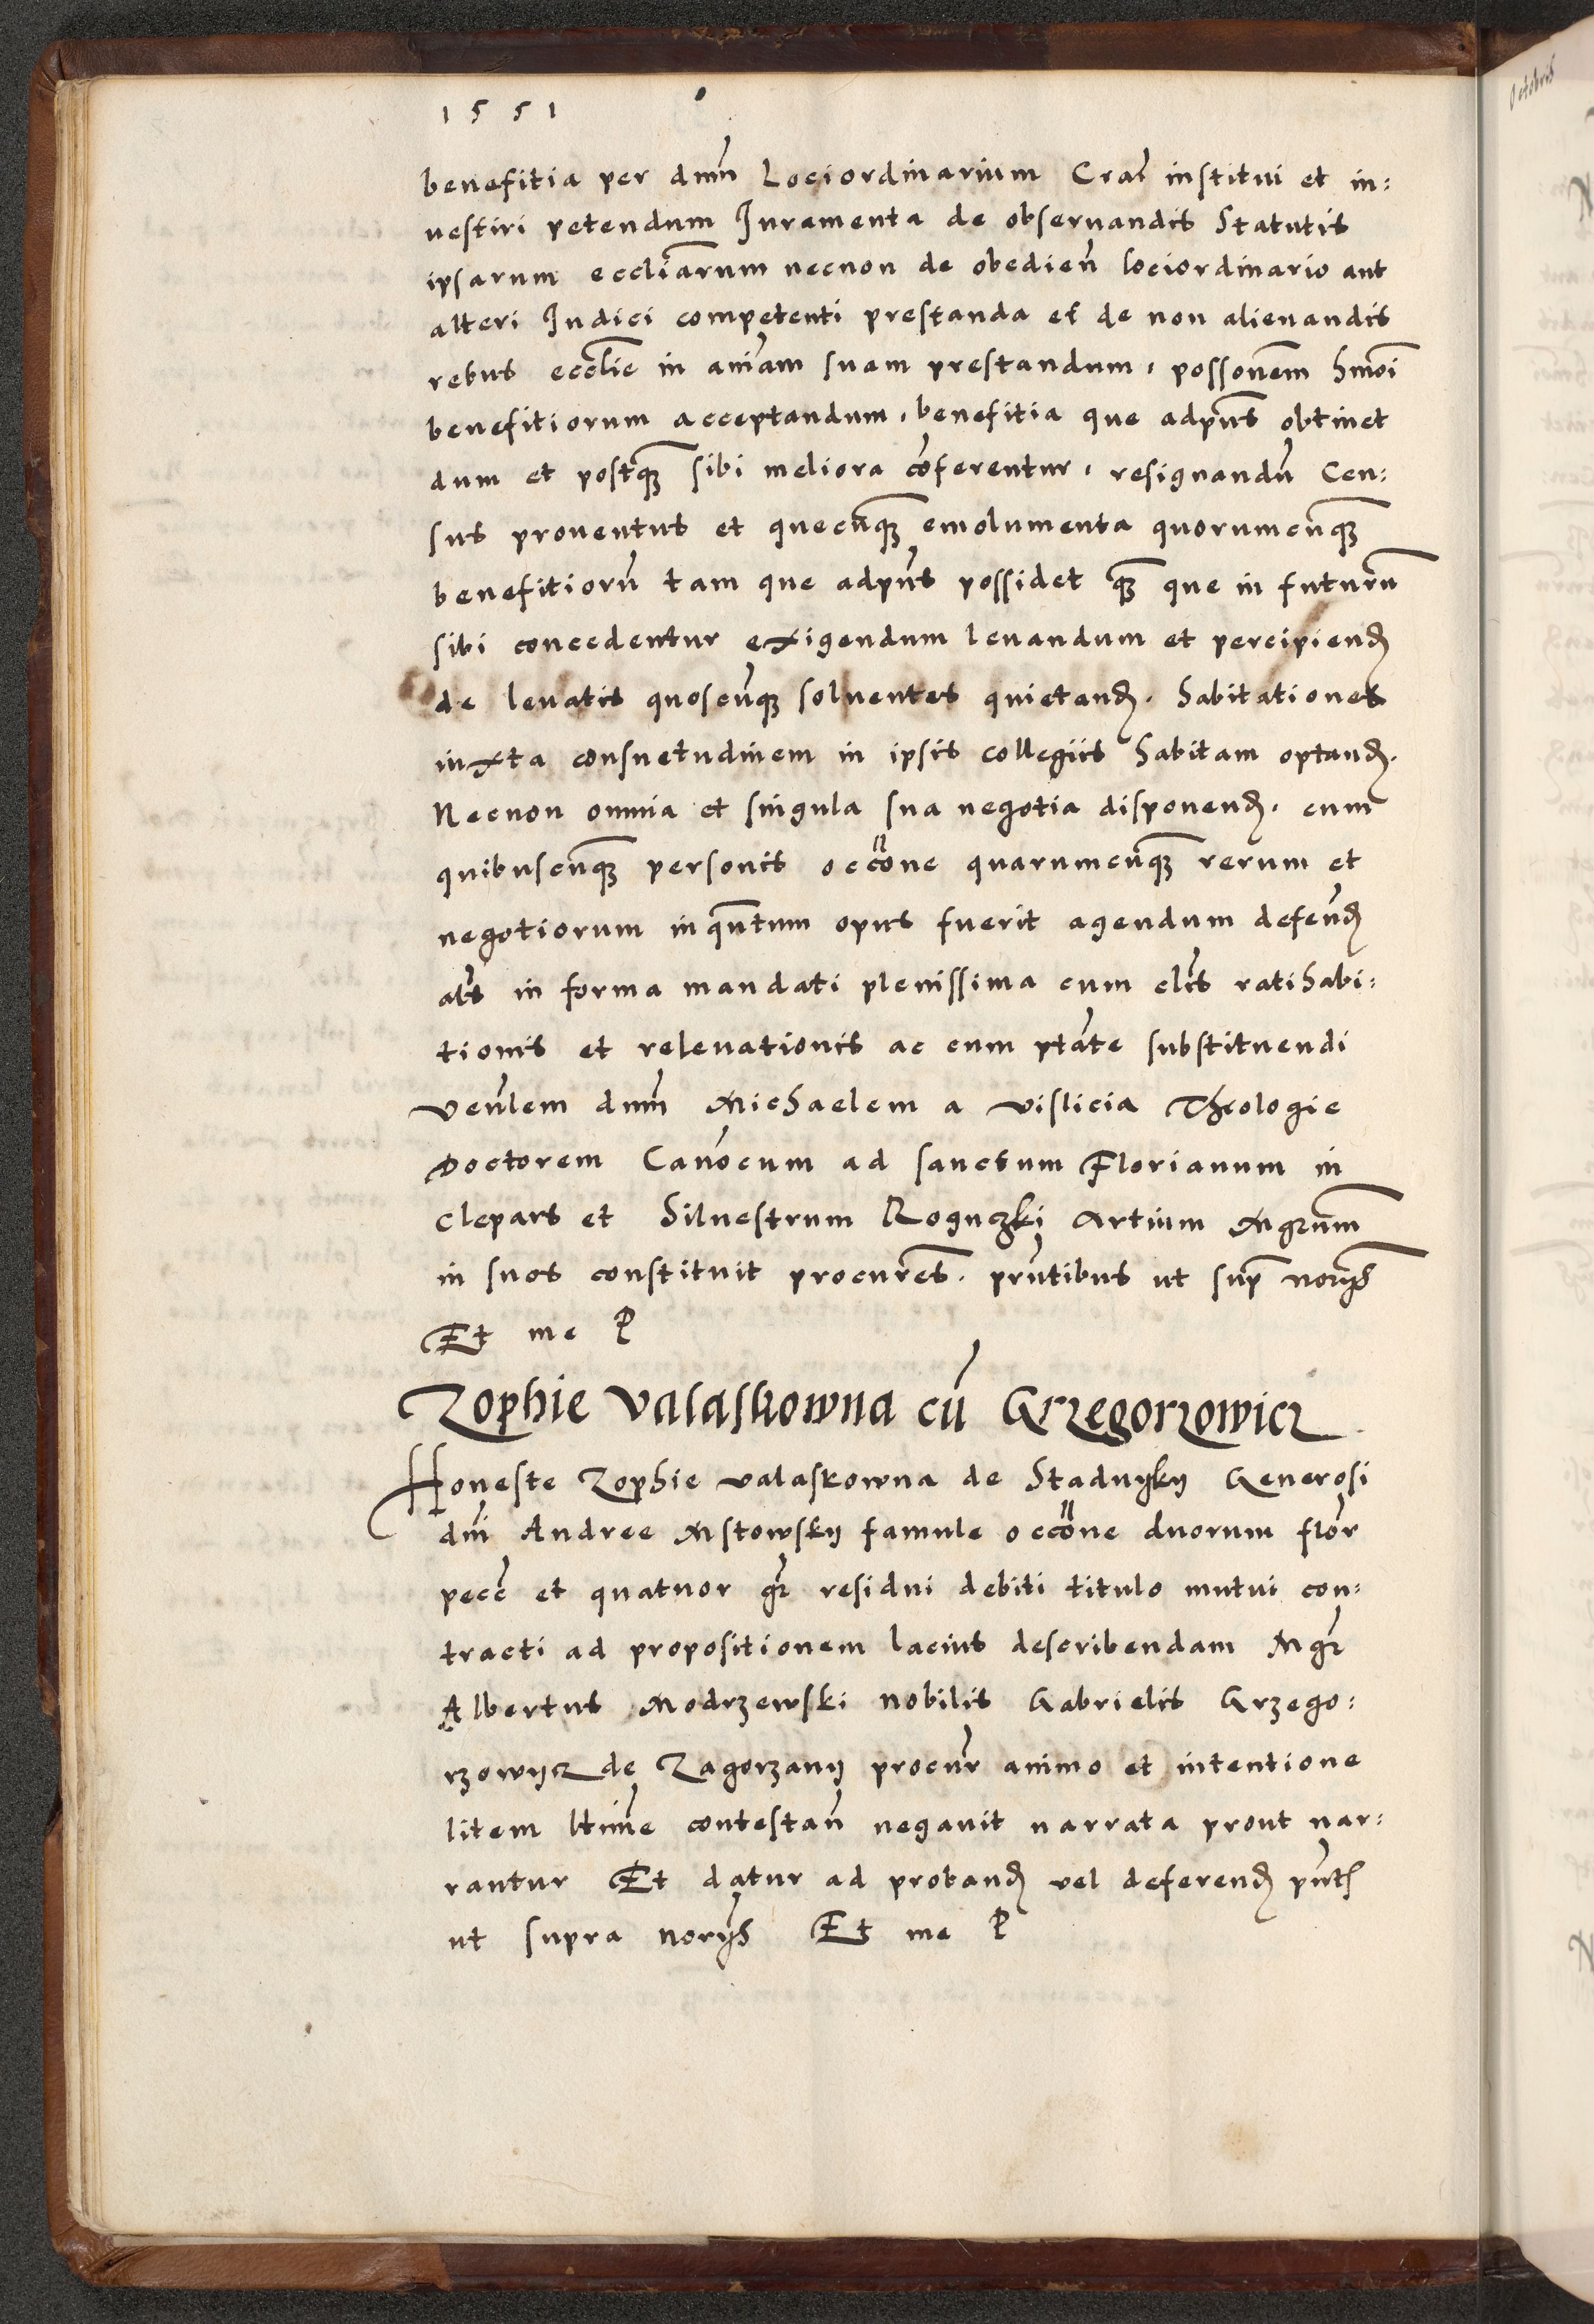 1551
benefitia per dnm̄ Lociordinarium Crac̄ institui et in:
uestiri petendum Iuramenta de obseruandis Statutis
ipsarum eccliārum necnon de obedien̄ lociordinario aut
alteri Iudici competenti prestanda et de non alienandis
rebus eccliē in aniām suam prestandum, possonēm hmōi
benefitiorum acceptandum, benefitia que adpn̄s obtinet
dum et postq̄ꝫ sibi meliora cōferentur, resignandū Cen:
sus prouentus et quecūqꝫ emolumenta quorumcūqꝫ
benefitiorū tam que adpn̄s possidet q̄ꝫ que in futurū
sibi concedentur exigendum leuandum et percipienđ
de leuatis quoscūqꝫ soluentes quietanđ. habitationes
iuxta consuetudinem in ipsis collegiis habitam optanđ.
Necnon omnia et singula sua negotia disponenđ. cum
quibuscūqꝫ personis occōne quarumcūqꝫ rerum et
negotiorum inqn̄tum opus fuerit agendum defenđ
als̄ in forma mandati plenissima cum clis̄ ratihabi:
tionis et releuationis ac cum ptāte substituendi
venl̄em dnm̄ Michaelem a vislicia Theologie
Doctorem Canōcum ad sanctum Florianum in
Clepars et Siluestrum Roguczki Artium Mgrūm
in suos constituit procures̄. prn̄tibus ut sup̄ norijs̄
Et me P
Zophie Valaskowna cū Grzegorzowicz
Honeste Zophie valaskowna de Stadnijkij Generosi
dni̅ Andree Mstowskij famule occōne duorum flor̄
pecc̄ et quatuor gr̄ residui debiti titulo mutui con:
tracti ad propositionem lacius describendam Mgr̄
Albertus Modrzewski nobilis Gabrielis Grzego:
rzowijcz de Zagorzanij procur̄ animo et intentione
litem ltim̄e contestan̄ negauit narrata prout nar:
rantur Et datur ad probanđ vel deferenđ pn̄tꝭ
ut supra norijs̄ Et me P
Octobris